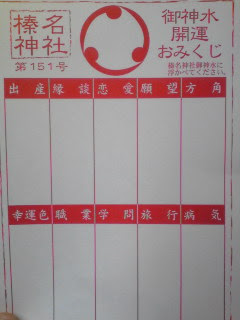 榛名
神社
第151号
御神水
開運
おみくじ
榛名神社御神水に
浮かべてください。
出産 縁談 恋愛 願望 方角
幸運色 職業 学問 旅行 病気